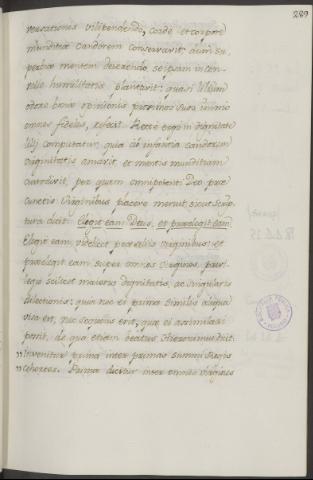 289
versationes vilipendendo, corde et corpore
munditiae candorem conservavit; dum su-
perbae mentem deserendo, se ipsam in con-
valle humilitatis plantavit: quasi lilium
odore bonae opinionis proximos suos unimo
omnes fideles, refecit. Recte ergo in dignitate
lilij computatur, quia ab infantia candorem
virginitatis amavit, et mentis munditiam
custodivit, per quem omnipotenti Deo prae
cunctis Virginibus placere meruit sicut Scrip-
tura dicit: Elegit eam Deus, et praeelegit eam,
Elegit eam videlicet prae aliis virginibus: et
praeelegit eam super omnes Virgines, privi-
legio scilicet maioris dignitatis, ac singularis
dilectionis; quia nec et primo similis aliqua
visa est, nec sequens erit, quae ei assimilari
poterit, de qua etiam beatus Hieronimus dicit:
Invenitur prima inter primas summi Regis
cohortes. Prima dicitur inter omnes virgines